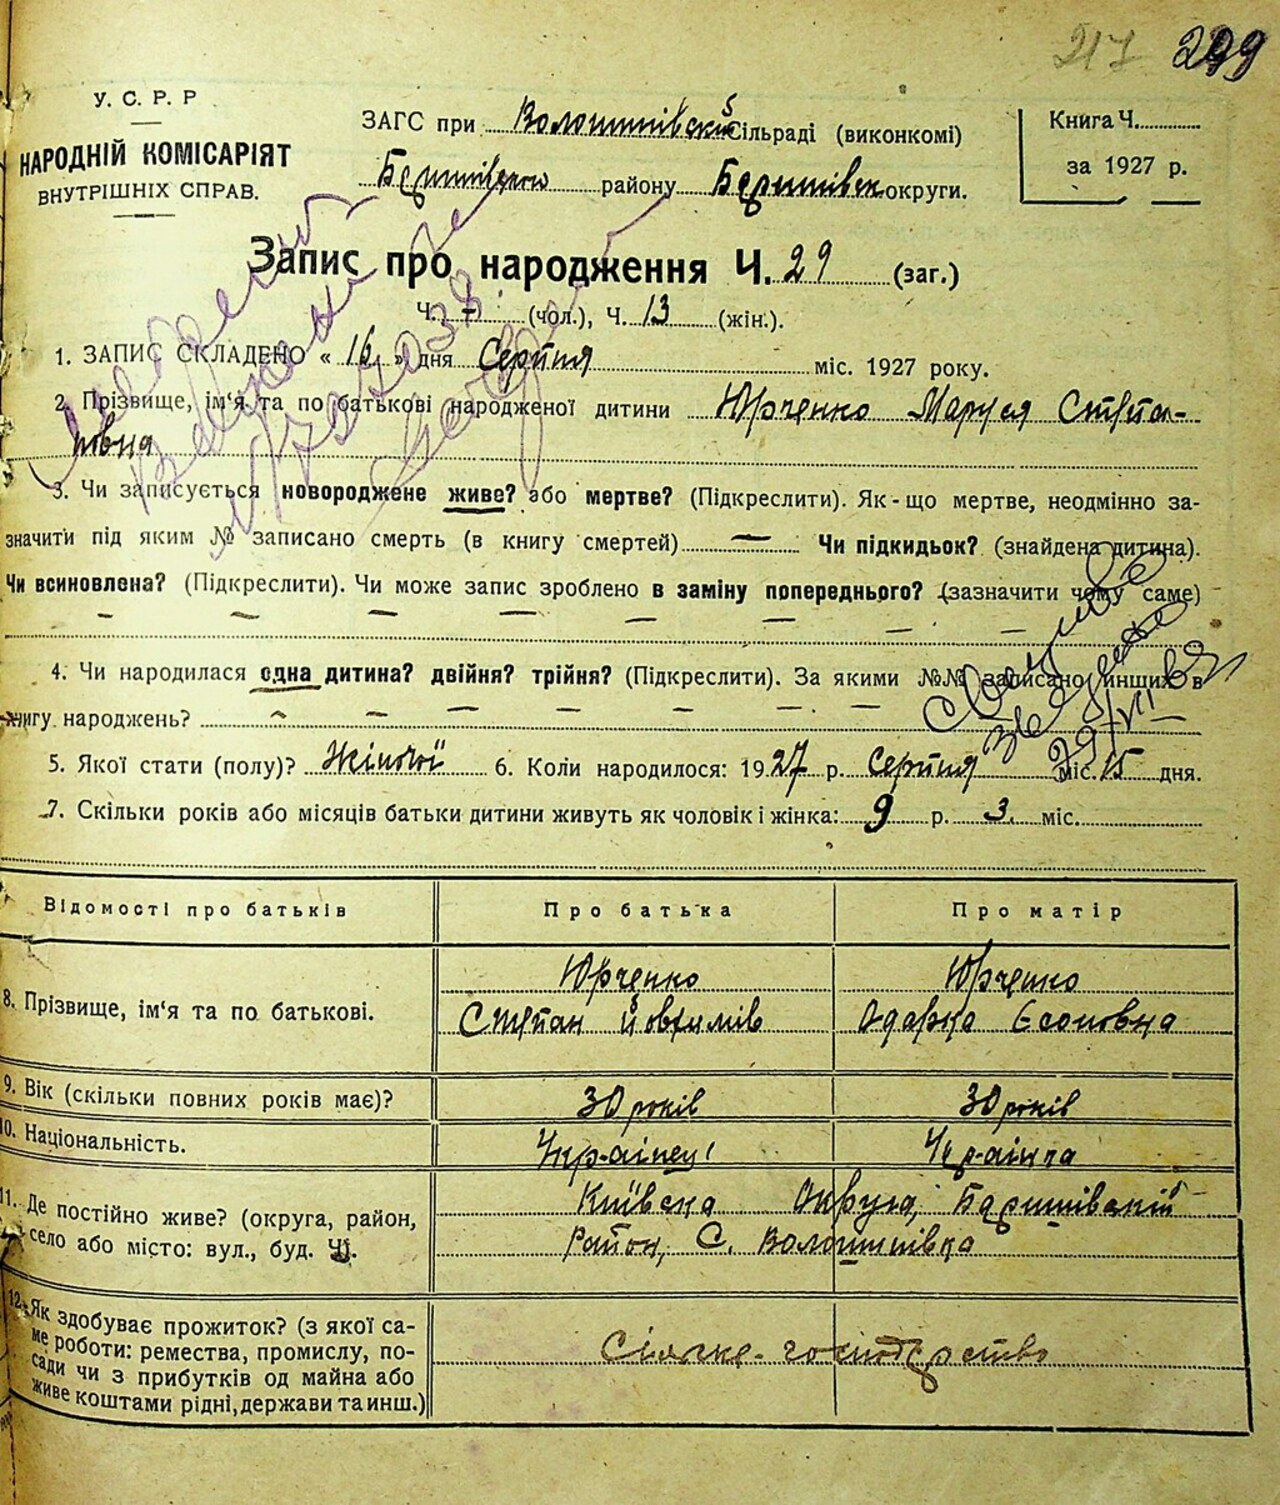 217 299
У. С. Р. Р
НАРОДНІЙ КОМІСАРІЯТ
ВНУТРІШНІХ СПРАВ.
ЗАГС при Волошинівскій Сільраді (виконкомі)
району Баришівск округи.
Книга Ч.
за 1927 р.
Запис про народження Ч. 29 (заг.)
Ч. – (чол.), Ч. 13 (жін.).
1. ЗАПИС СКЛАДЕНО « 16 » дня Серпня міс. 1927 року.
2. Прізвище, ім'я та по батькові народженої дитини Юрченко Маруся Степа-
новна
3. Чи записується новороджене живе? або мертве? (Підкреслити). Як-що мертве, неодмінно за-
значити під яким № записано смерть (в книгу смертей) — Чи підкидьок? (знайдена дитина).
Чи всиновлена? (Підкреслити). Чи може запис зроблено в заміну попереднього? (зазначити чому саме)
4. Чи народилася одна дитина? двійня? трійня? (Підкреслити). За якими №№ записано инших в
книгу народжень?
5. Якої стати (полу)? Жіночої 6. Коли народилося: 1927 р. Серпня міс. 15 дня.
7. Скільки років або місяців батьки дитини живуть як чоловік і жінка: 9 р. 3. міс.
Відомості про батьків Про батька Про матір
8. Прізвище, ім'я та по батькові.
Юрченко Юрченко
Степан Йовхимів Одарка
9. Вік (скільки повних років має)? 30 років 30 років
10. Національність. Украінець Украінка
11. Де постійно живе? (округа, район,
село або місто: вул., буд. Ч.
Київска Округа, Баришівскій
Район, С. Волошинівка
12. Як здобуває прожиток? (з якої са-
ме роботи: ремества, промислу, по-
сади чи з прибутків од майна або
живе коштами рідні, держави та инш.)
Сільске-господарство